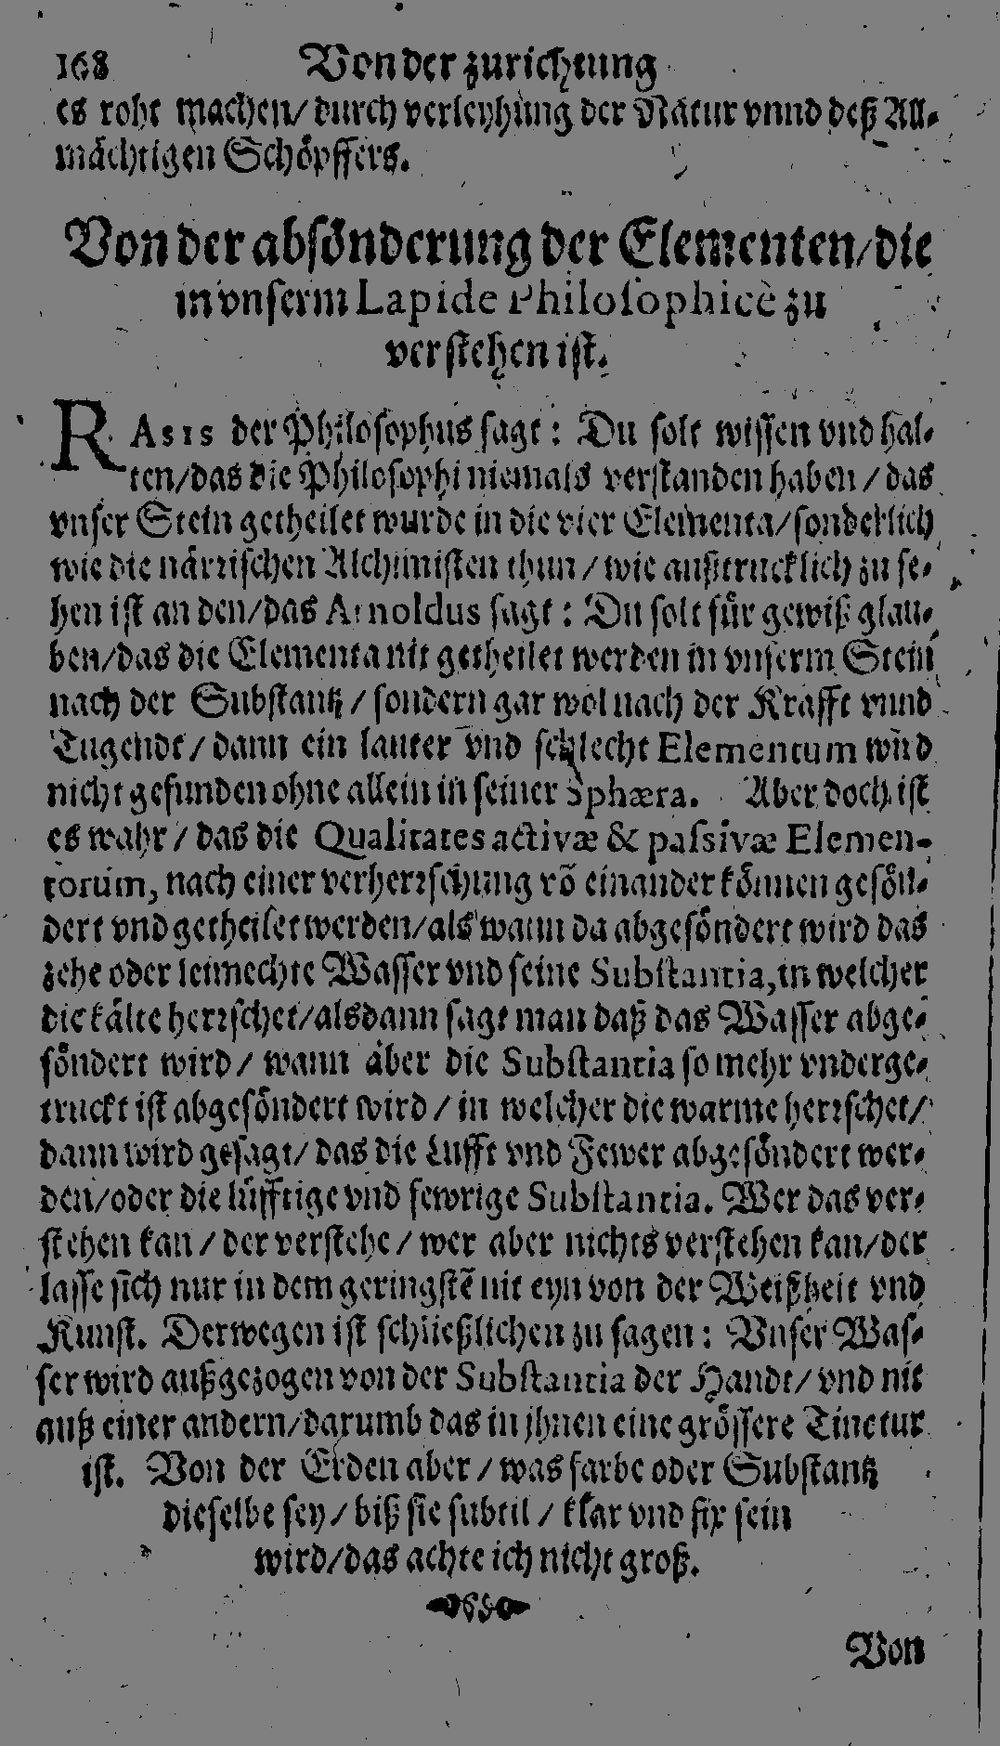 168 Von der zurichtung
es roht machen/ durch verleyhung der Natur vnnd deß All-
mächtigen Schöpffers.
Von der absönderung der Elementen/die
in vnserm Lapide Philosophicè zu
verstehen ist.
RAsis der Philosophus sagt: Du solt wissen vnd hal-
ten/das die Philosophi niemals verstanden haben/das
vnser Stein getheilet wurde in die vier Elementa/sonderlich
wie die närrischen Alchimisten thun/wie außtrucklich zu se-
hen ist an den/das Arnoldus sagt: Du solt für gewiß glau-
ben/das die Elementa nit getheilet werden in vnserm Stein
nach der Substantz/sondern gar wol nach der Krafft vnnd
Tugendt/dann ein lauter vnd schlecht Elementum wird
nicht gefunden ohne allein in seiner Sphæra. Aber doch ist
es wahr/das die Qualitates activæ & passivæ Elemen-
torum, nach einer verherrschung võ einander können gesön-
dert vnd getheilet werden/als wann da abgesöndert wird das
zehe oder leimechte Wasser vnd seine Substantia, in welcher
die kälte herrschet/alsdann sagt man daß das Wasser abge-
söndert wird/wann aber die Substantia so mehr vnderge-
truckt ist abgesöndert wird/in welcher die warme herrschet/
dann wird gesagt/das die Lufft vnd Fewer abgesöndert wer-
den/oder die lüfftige vnd fewrige Substantia. Wer das ver-
stehen kan/der verstehe/wer aber nichts verstehen kan/der
lasse sich nur in dem geringstẽ nit eyn von der Weißheit vnd
Kunst. Derwegen ist schließlichen zu sagen: Vnser Was-
ser wird außgezogen von der Substantia der Handt/vnd nit
auß einer andern/darumb das in jhnen eine grössere Tinctur
ist. Von der Erden aber/was farbe oder Substantz
dieselbe sey/biß sie subtil/klar vnd fix sein
wird/das achte ich nicht groß.
Von